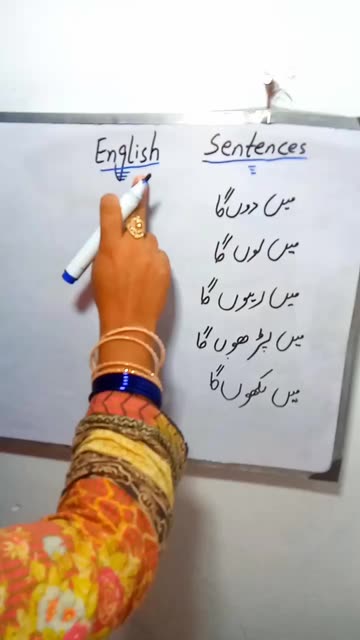 English Sentences
میں دوں گا
میں لوں گا
میں رہوں گا
میں پڑھوں گا
میں لکھوں گا